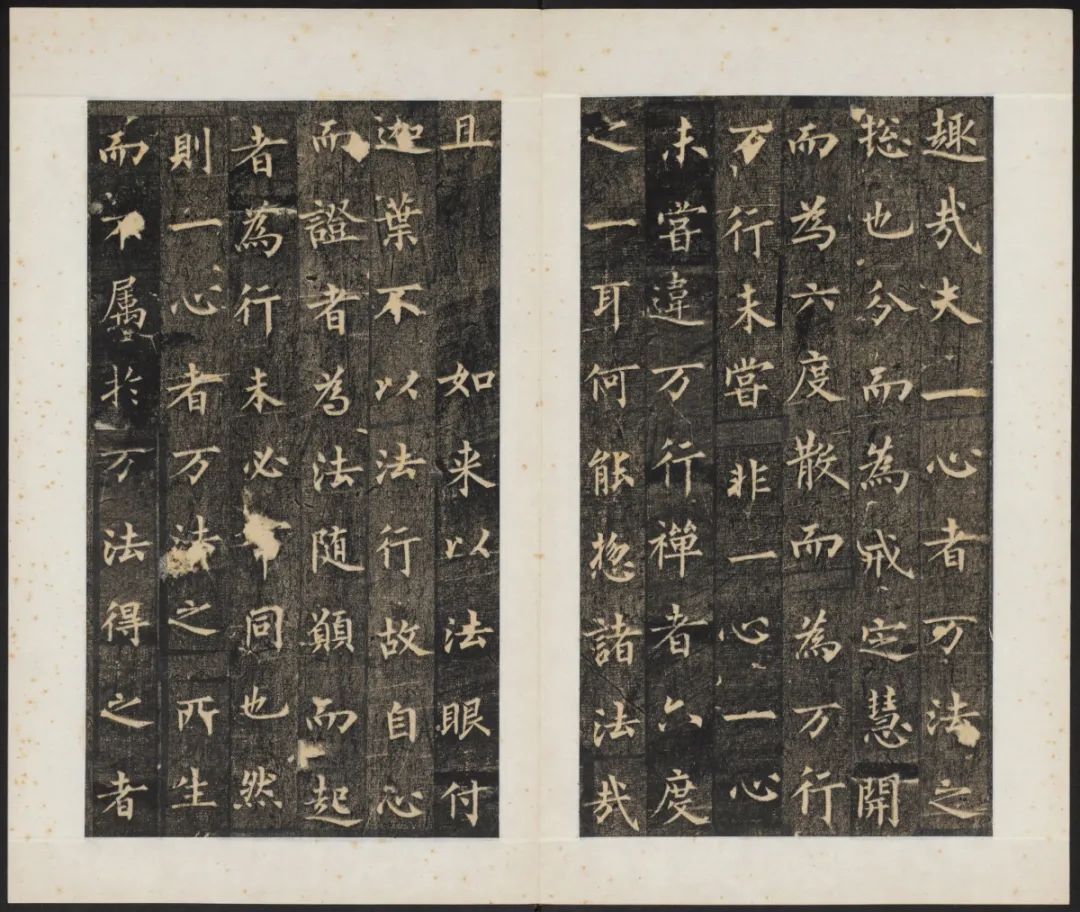 趣哉夫一心者万法之
揔也分而為戒定慧開
而為六度散而為万行
万行未嘗非一心一心
未嘗違万行禪者六度
之一耳何能揔諸法哉
且如来以法眼付
迦葉不以法行故自心
而證者為法随願而起
者為行未必不同也然
則一心者万法之所生
而不属於万法得之者